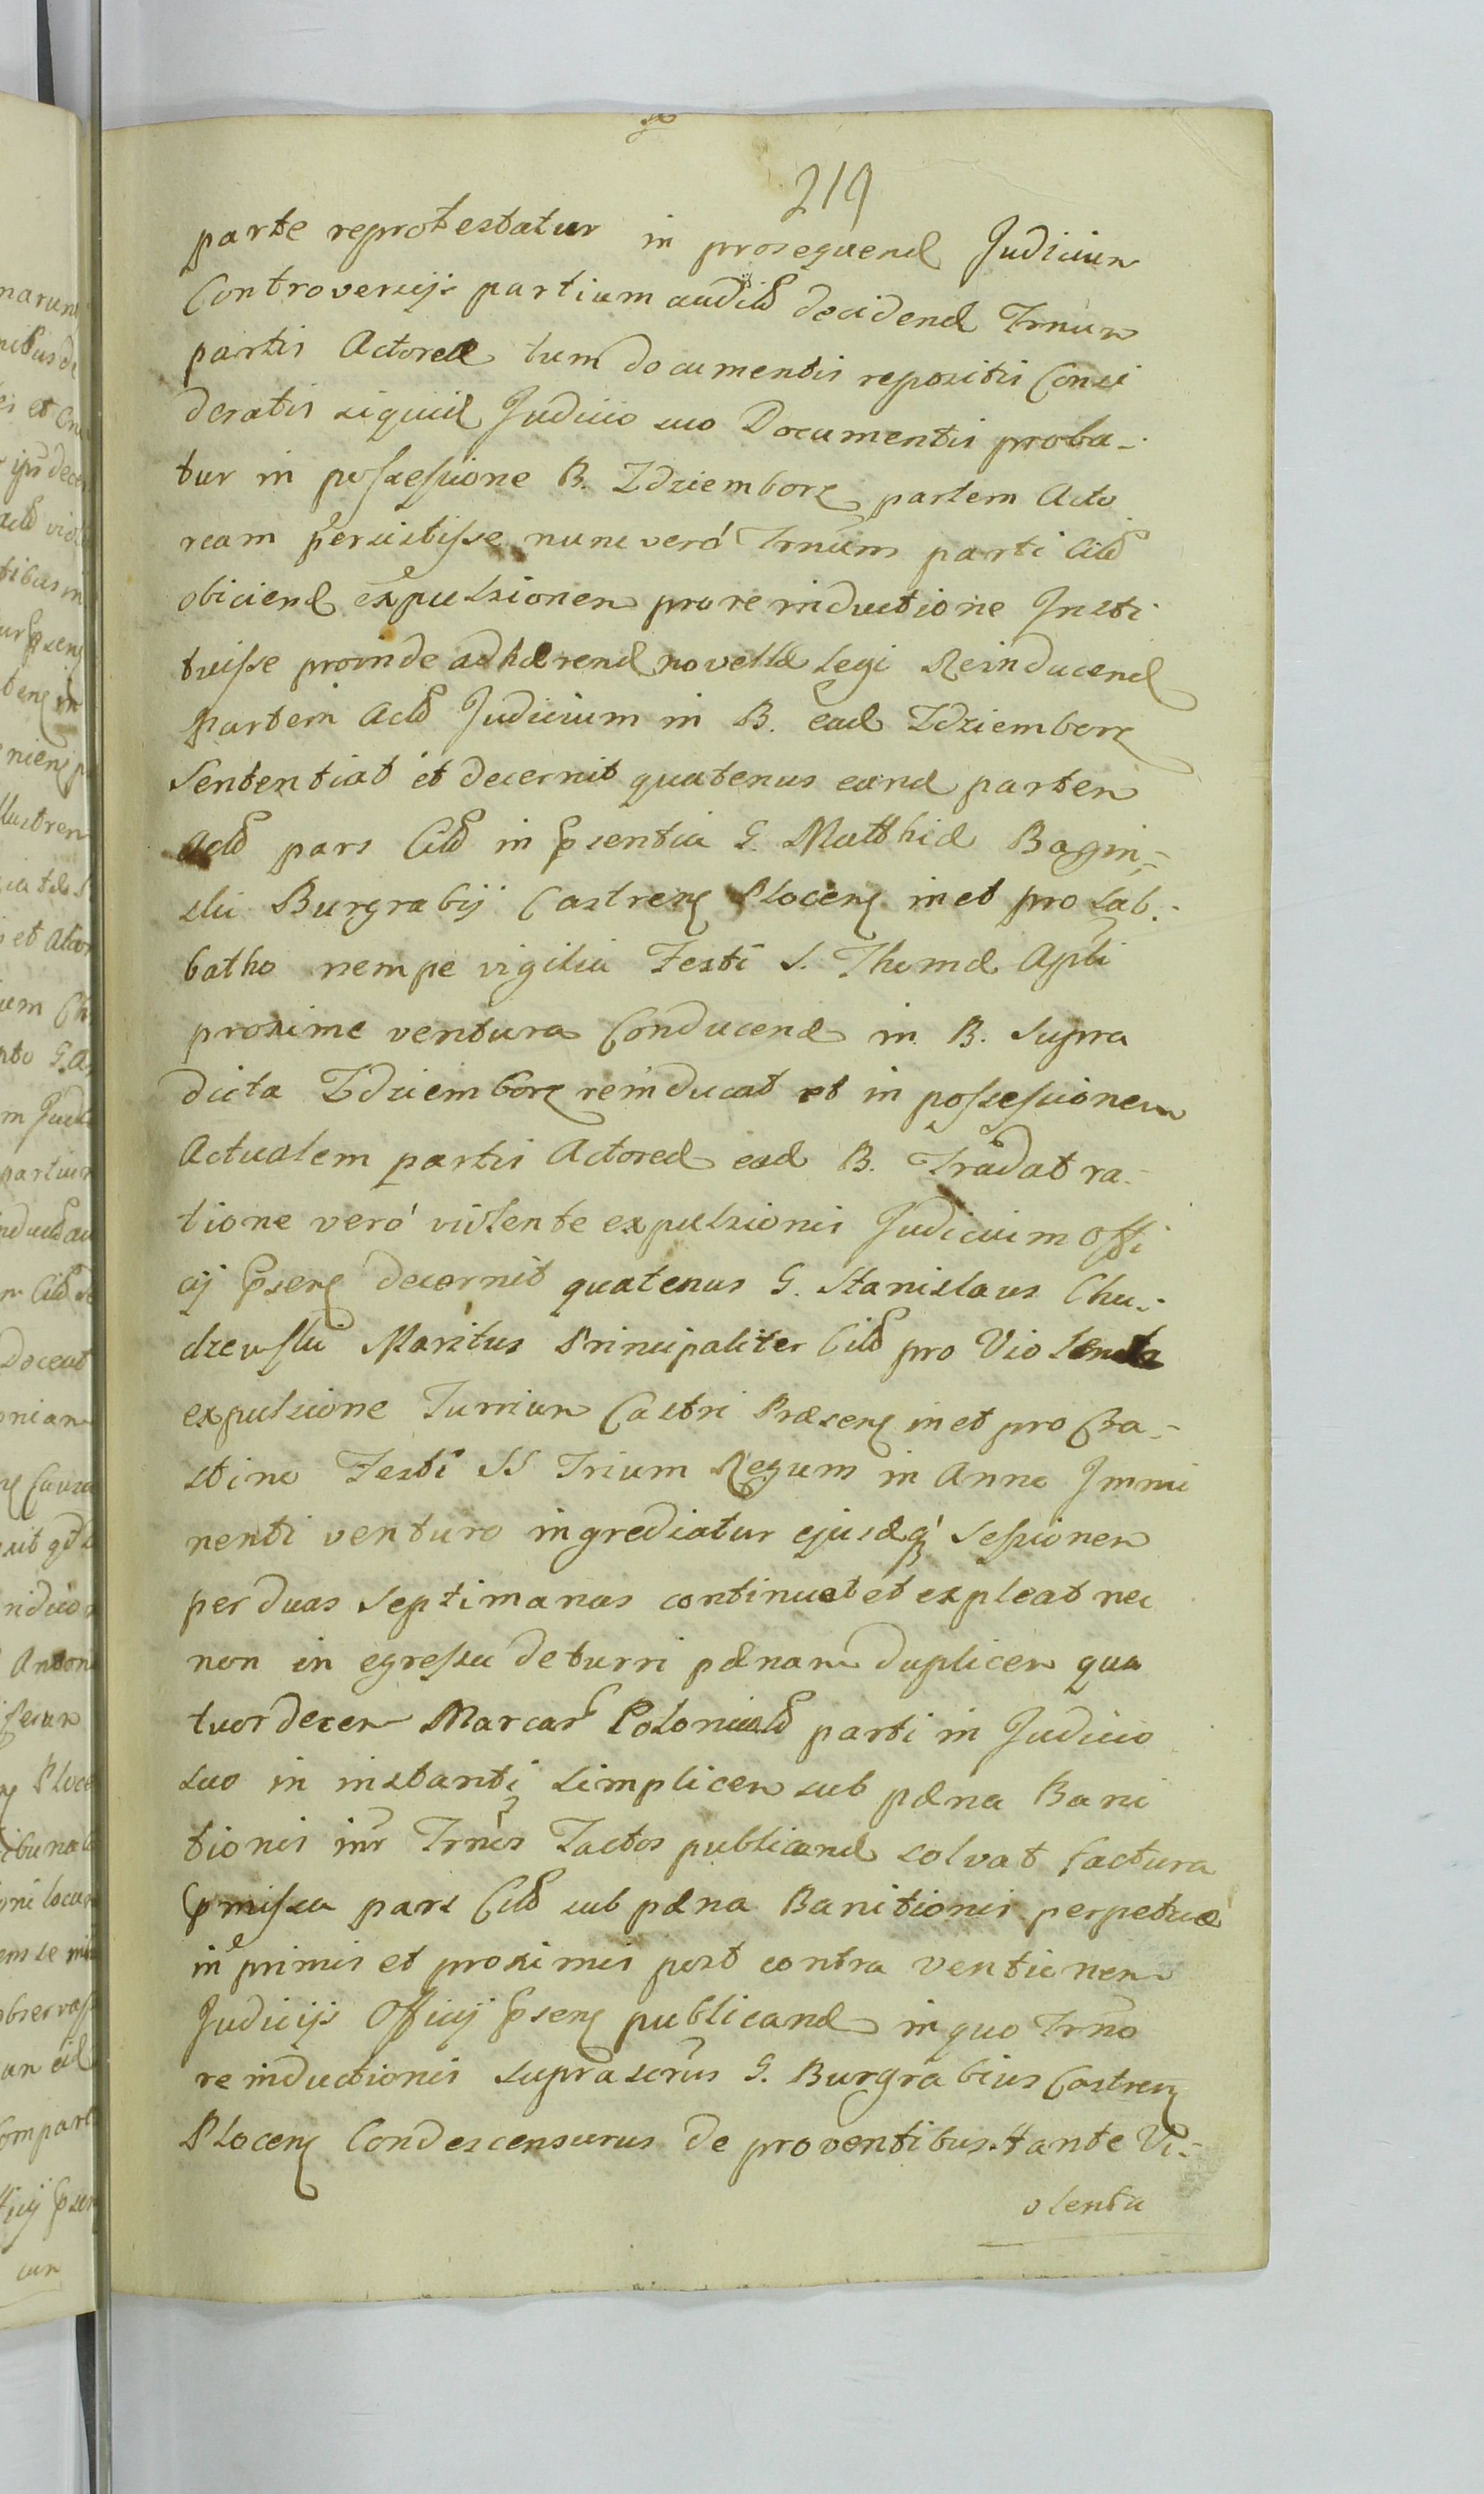 219
parte reprotestatur in prosequend Judicium
Controversijs partium audit decidend Trnum
partis Actoreæ tum documentis repositis Consi
deratis siquid Judicio suo Documentis proba-
tur in possessione B. Zdziemborz partem Acto
ream perstitisse nunc veró Trnum parti Cit
obiciend expulsionem pro reinductione Insti
tuisse proinde adhærend novellæ legi Reinducend
partem Act Judicium in B. ead Zdziemborz
Sententiat et decernit quatenus eand partem
Act pars Cit in psentia G. Matthiæ Bagin-
ski Burgrabij Castren Plocen in et pro Sab-
batho nempe vigilia Festi S. Thomæ Apli
proxime ventura Conducend in B. supra
dicta Zdziemborz reinducat et in possessionem
Actualem partis Actoreæ ead B. Tradat ra-
tione veró violente expulsionis Judicium Offi
cij psen decernit quatenus G. Stanislaus Chu-
dzewski Maritus Principaliter Cit pro Violenta
expulsione Turrim Castri Præsen in et pro Cra-
stino Festi SS Trium Regum in Anno Immi
nenti venturo ingrediatur ejusdq sessionem
per duas septimanas continuet et expleat nec
non in egressu de turri pænam duplicem qua
tuordecem Marcar Polonical parti in Judicio
suo in instanti simplicem sub pæna Bani
tionis inr Trnos Tactos publicand solvat factura
pmissa pars Cit sub pæna Banitionis perpetuæ
in primis et proximis post contra ventionem
Judicijs Officij psen publicand in quo Trno
reinductionis suprascrus G. Burgrabius Castren
Plocen Condescensurus de proventibus stante Vi-
olenta